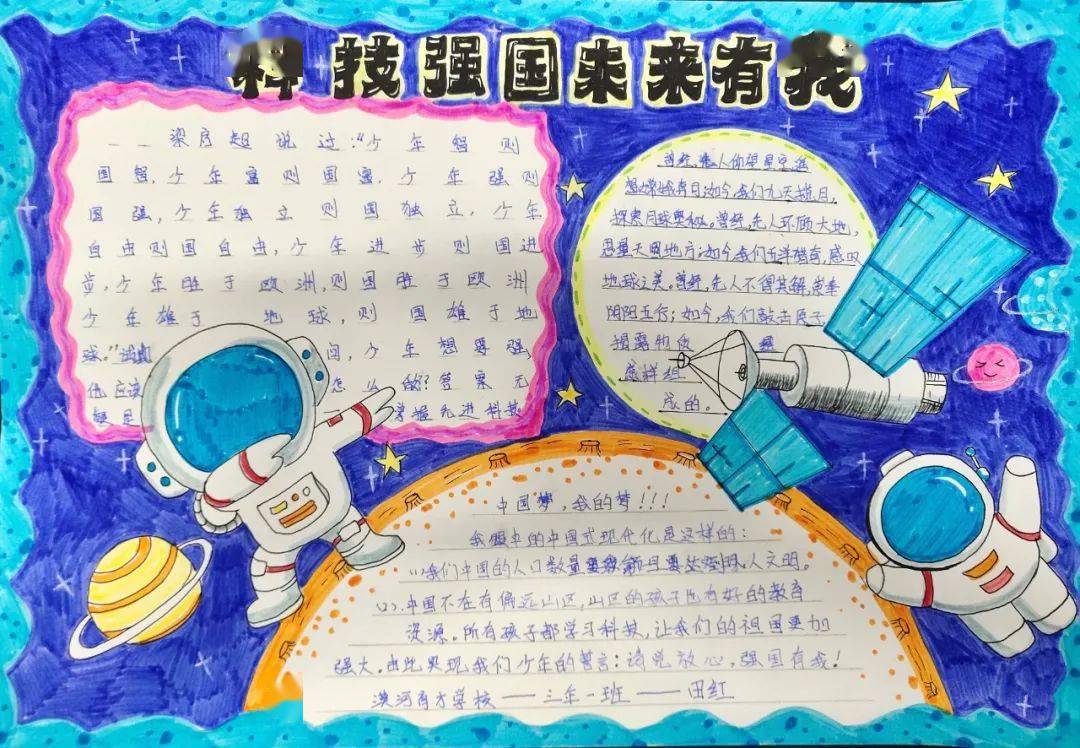 科技强国未来有我
梁启超说过:“少年智则
国智,少年富则国富,少年强则
国强,少年独立则国独立,少年
自由则国自由,少年进步则国进
步,少年胜于欧洲,则国胜于欧洲
少年雄于 地球,则国雄于地
球。” 问,少年想要强
他应该 怎么做?答案无
疑是 掌握先进科技
曾经,先人仰望星空
想嫦娥奔月;如今,我们九天揽月,
探索月球奥秘。曾经,先人环顾大地,
思量天明地方;如今,我们五洋 ,感叹
地球之美。曾经,先人不得其解,
阴阳五行;如今,我们敲击原子
揭露物质
怎样组
成的。
中国梦,我的梦!!!
我想中的中国式现代化是这样的:
我们中国的人口数量 人文明。
(2).中国不在有偏远山区,山区的孩子也有好的教育
资源。所有孩子都学习科技,让我们的祖国更加
强大。由此实现我们少年的誓言:请党放心,强国有我!
育才学校——三年一班——田红